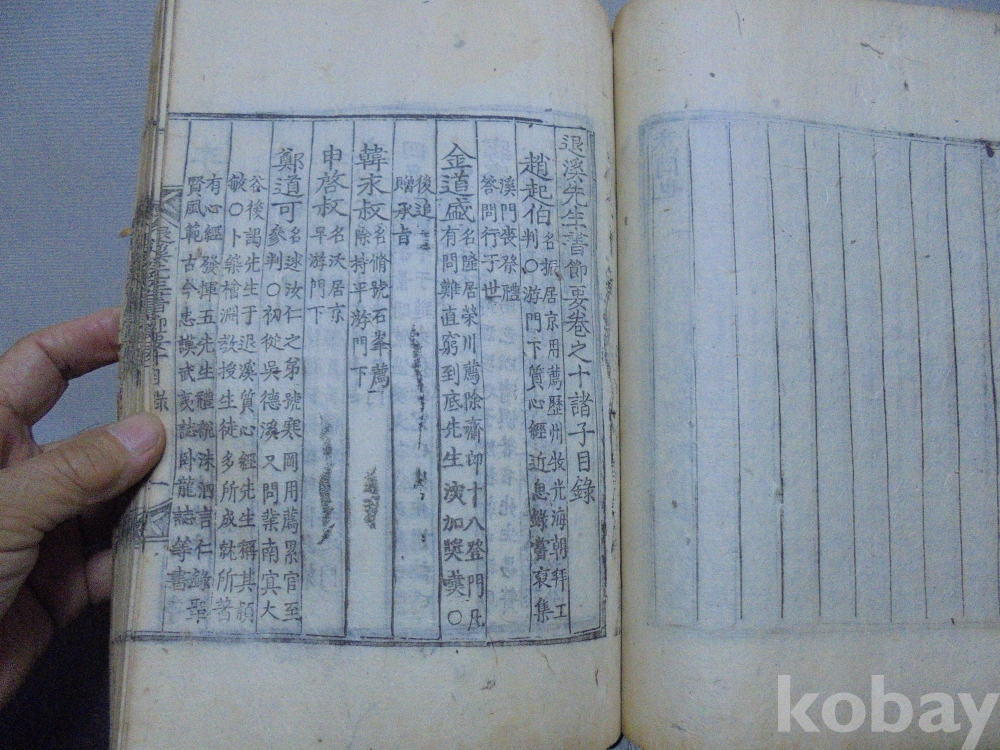 退溪先生書節要卷之十諸子目錄
趙起伯 名振居京用薦歷州牧光海朝拜工
判○游門下質心經近思錄嘗裒集
溪門喪祭禮
答問行于世
金道盛 名隆居榮川薦除齋郎十八登門凡
有問難直窮到底先生深加獎○
後追
贈承旨
韓永叔 名脩號石峯薦
除持平游門下
申啓叔 名沃居京
早游門下
鄭道可 名逑汝仁之弟號寒岡用薦累官至
參判○初從吳德溪又問業南冥大
谷後謁先生于退溪質心經先生稱其穎
敏○卜築檜淵敎授生徒多所成就所著
有心經發揮五先生禮說洙泗言仁錄
賢風範古今忠謨武夷誌臥龍誌等書
退溪先生書節要 目錄 一
kobay